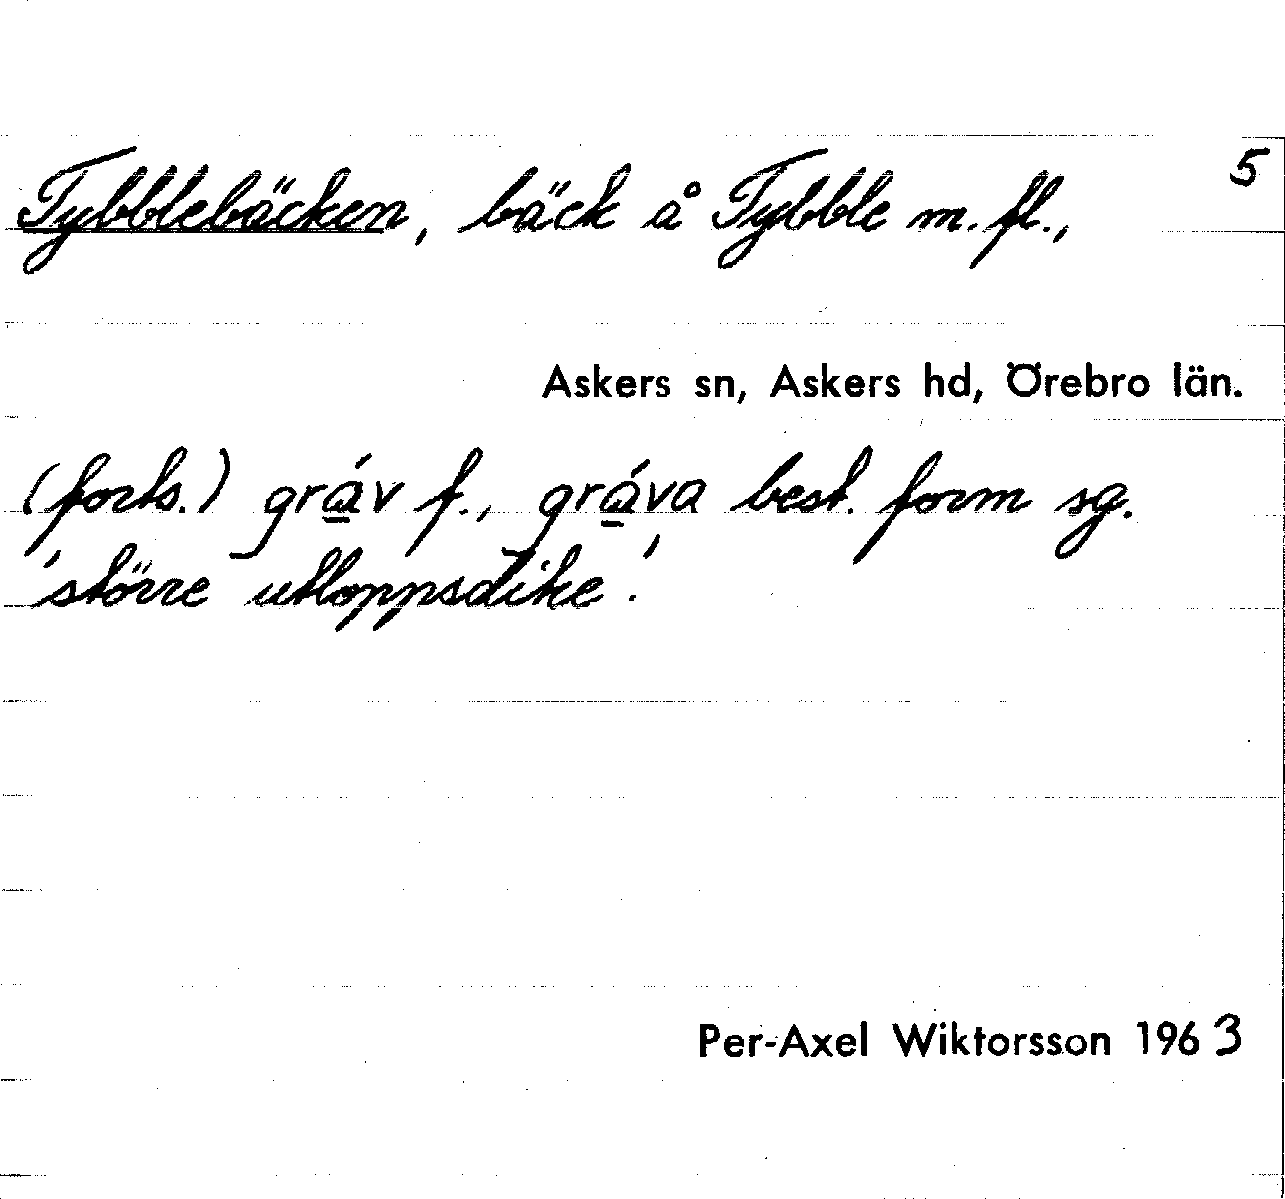 Tybblebäcken, bäck å Tybble m. fl., 5
Askers sn, Askers hd, Örebro län.
(forts.) gráv f., gráva best. form sg.
'större utloppsdike'.
Per-Axel Wiktorsson 1963